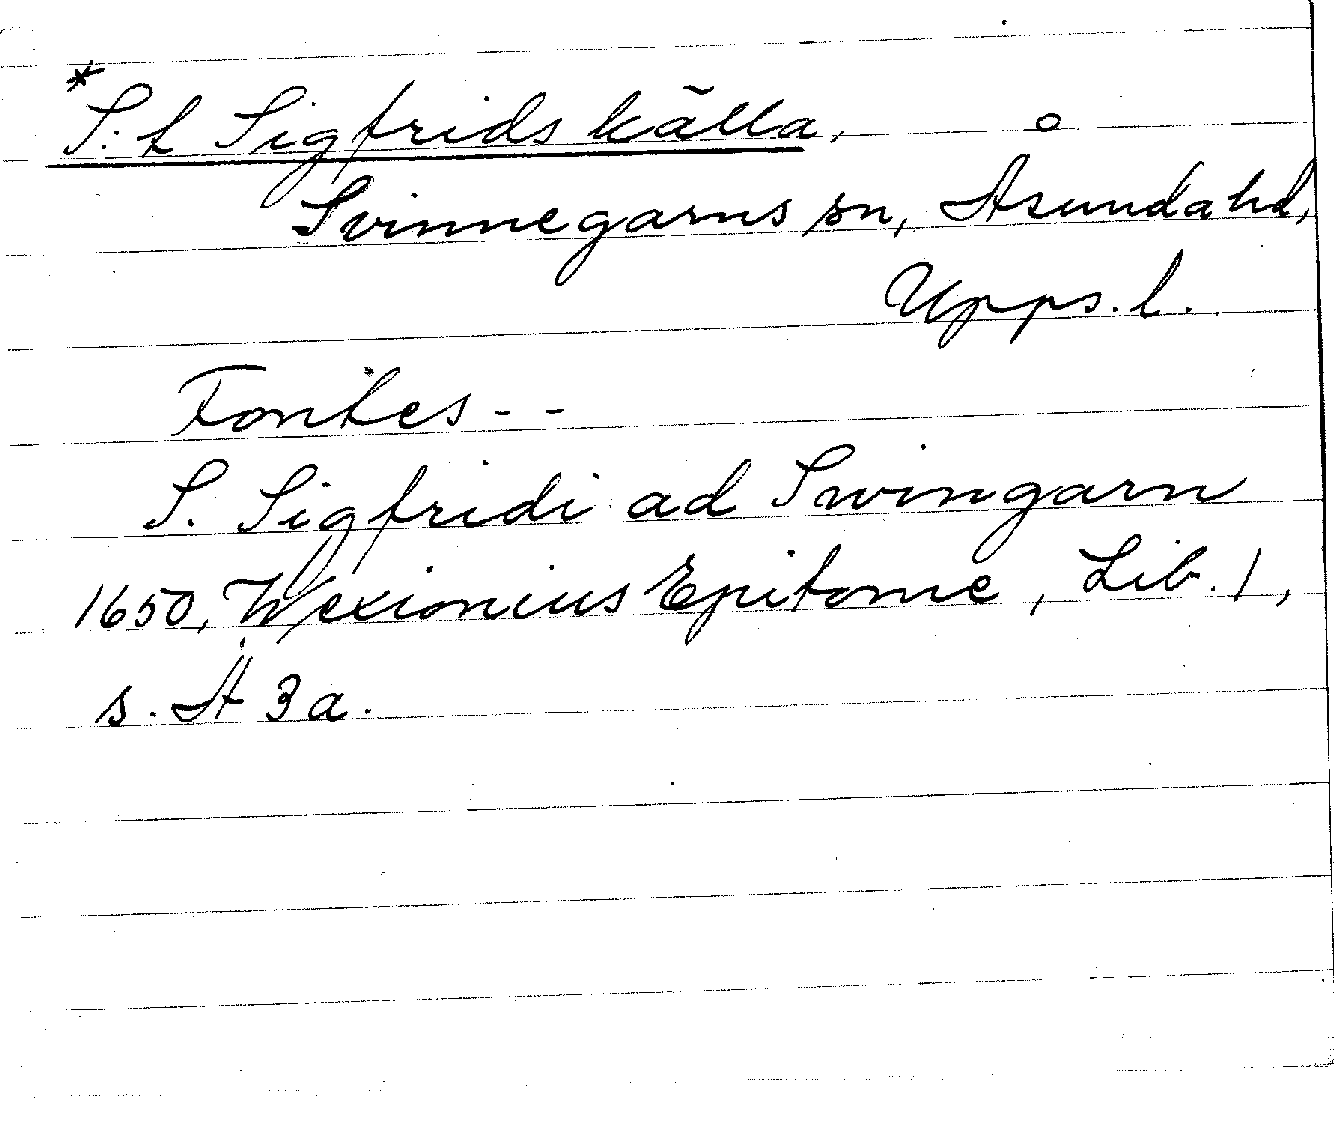 *S:t Sigfrids källa,
Svinnegarns sn, Åsunda hd,
Upps. l.
Fontes - -
S. Sigfridi ad Swingarn
1650, Wexionius Epitome, Lib. 1,
s. A 3a.